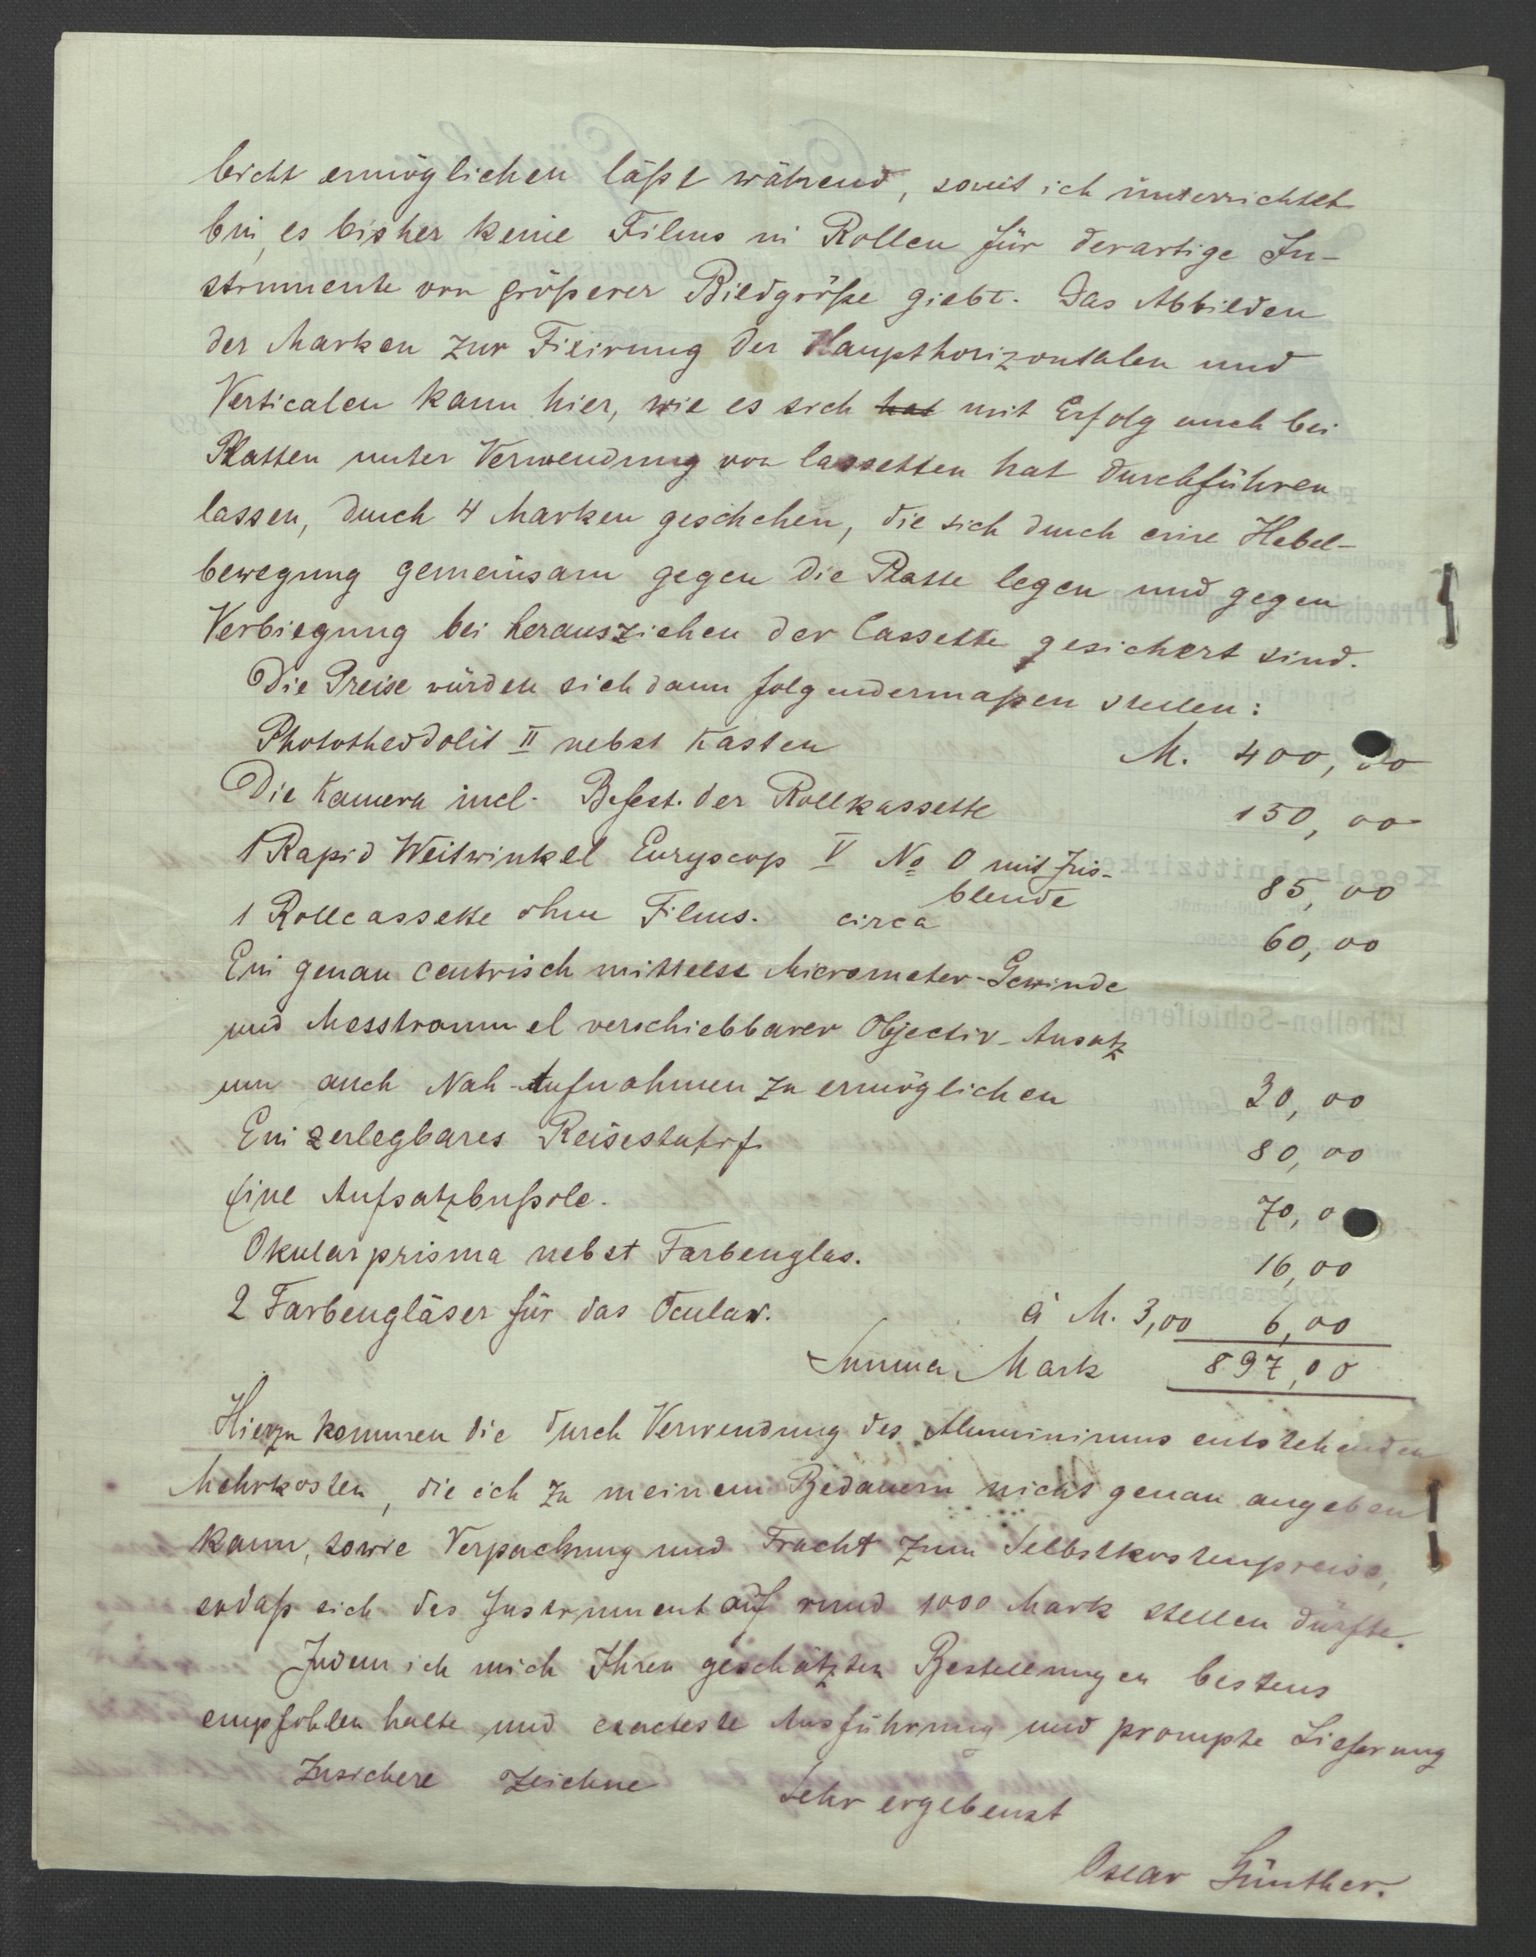 leicht ermöglichen läßt während, soweit ich unterrichtet
bin, es bisher keine Films in Rollen für derartige In-
strumente von größerer Bildgröße giebt. Das Abbilden
der Marken zur Fixirung der Haupthorizontalen und
Verticalen kann hier, wie es sich hat mit Erfolg auch bei
Platten unter Verwendung von Cassetten hat durchführen
lassen, durch 4 Marken geschehen, die sich durch eine Hebel-
bewegung gemeinsam gegen die Platte legen und gegen
Verbiegung bei herausziehen der Cassette gesichert sind.
Die Preise würden sich dann folgendermaßen stellen:
Phototheodolit II nebst Kasten M. 400,00
Die Kamera incl. Befest. der Rollkassette 150,00
1 Rapid Weitwinkel Euryscop V No 0 mit Iris-
blende 85,00
1 Rollcassette ohne Films. circa 60,00
Ein genau centrisch mittelst Micrometer-Gewinde
und Messtrommel verschiebbarer Objectiv-Ansatz
um auch Nah-Aufnahmen zu ermöglichen 30,00
Ein zerlegbares Reisestativ 80,00
Eine Aufsatzbußole. 70,0
Okularprisma nebst Farbenglas. 16,00
2 Farbengläser für das Ocular. à M. 3,00 6,00
Summa Mark 897,00
Hierzu kommen die durch Verwendung des Aluminiums entstehenden
Mehrkosten, die ich zu meinem Bedauern nicht genau angeben
kann, sowie Verpackung und Fracht zum Selbstkostenpreise,
sodaß sich das Instrument auf rund 1000 Mark stellen dürfte.
Indem ich mich Ihren geschätzten Bestellungen bestens
empfohlen halte und exacteste Ausführung und prompte Lieferung
zusichere zeichne Sehr ergebenst
Oscar Günther.